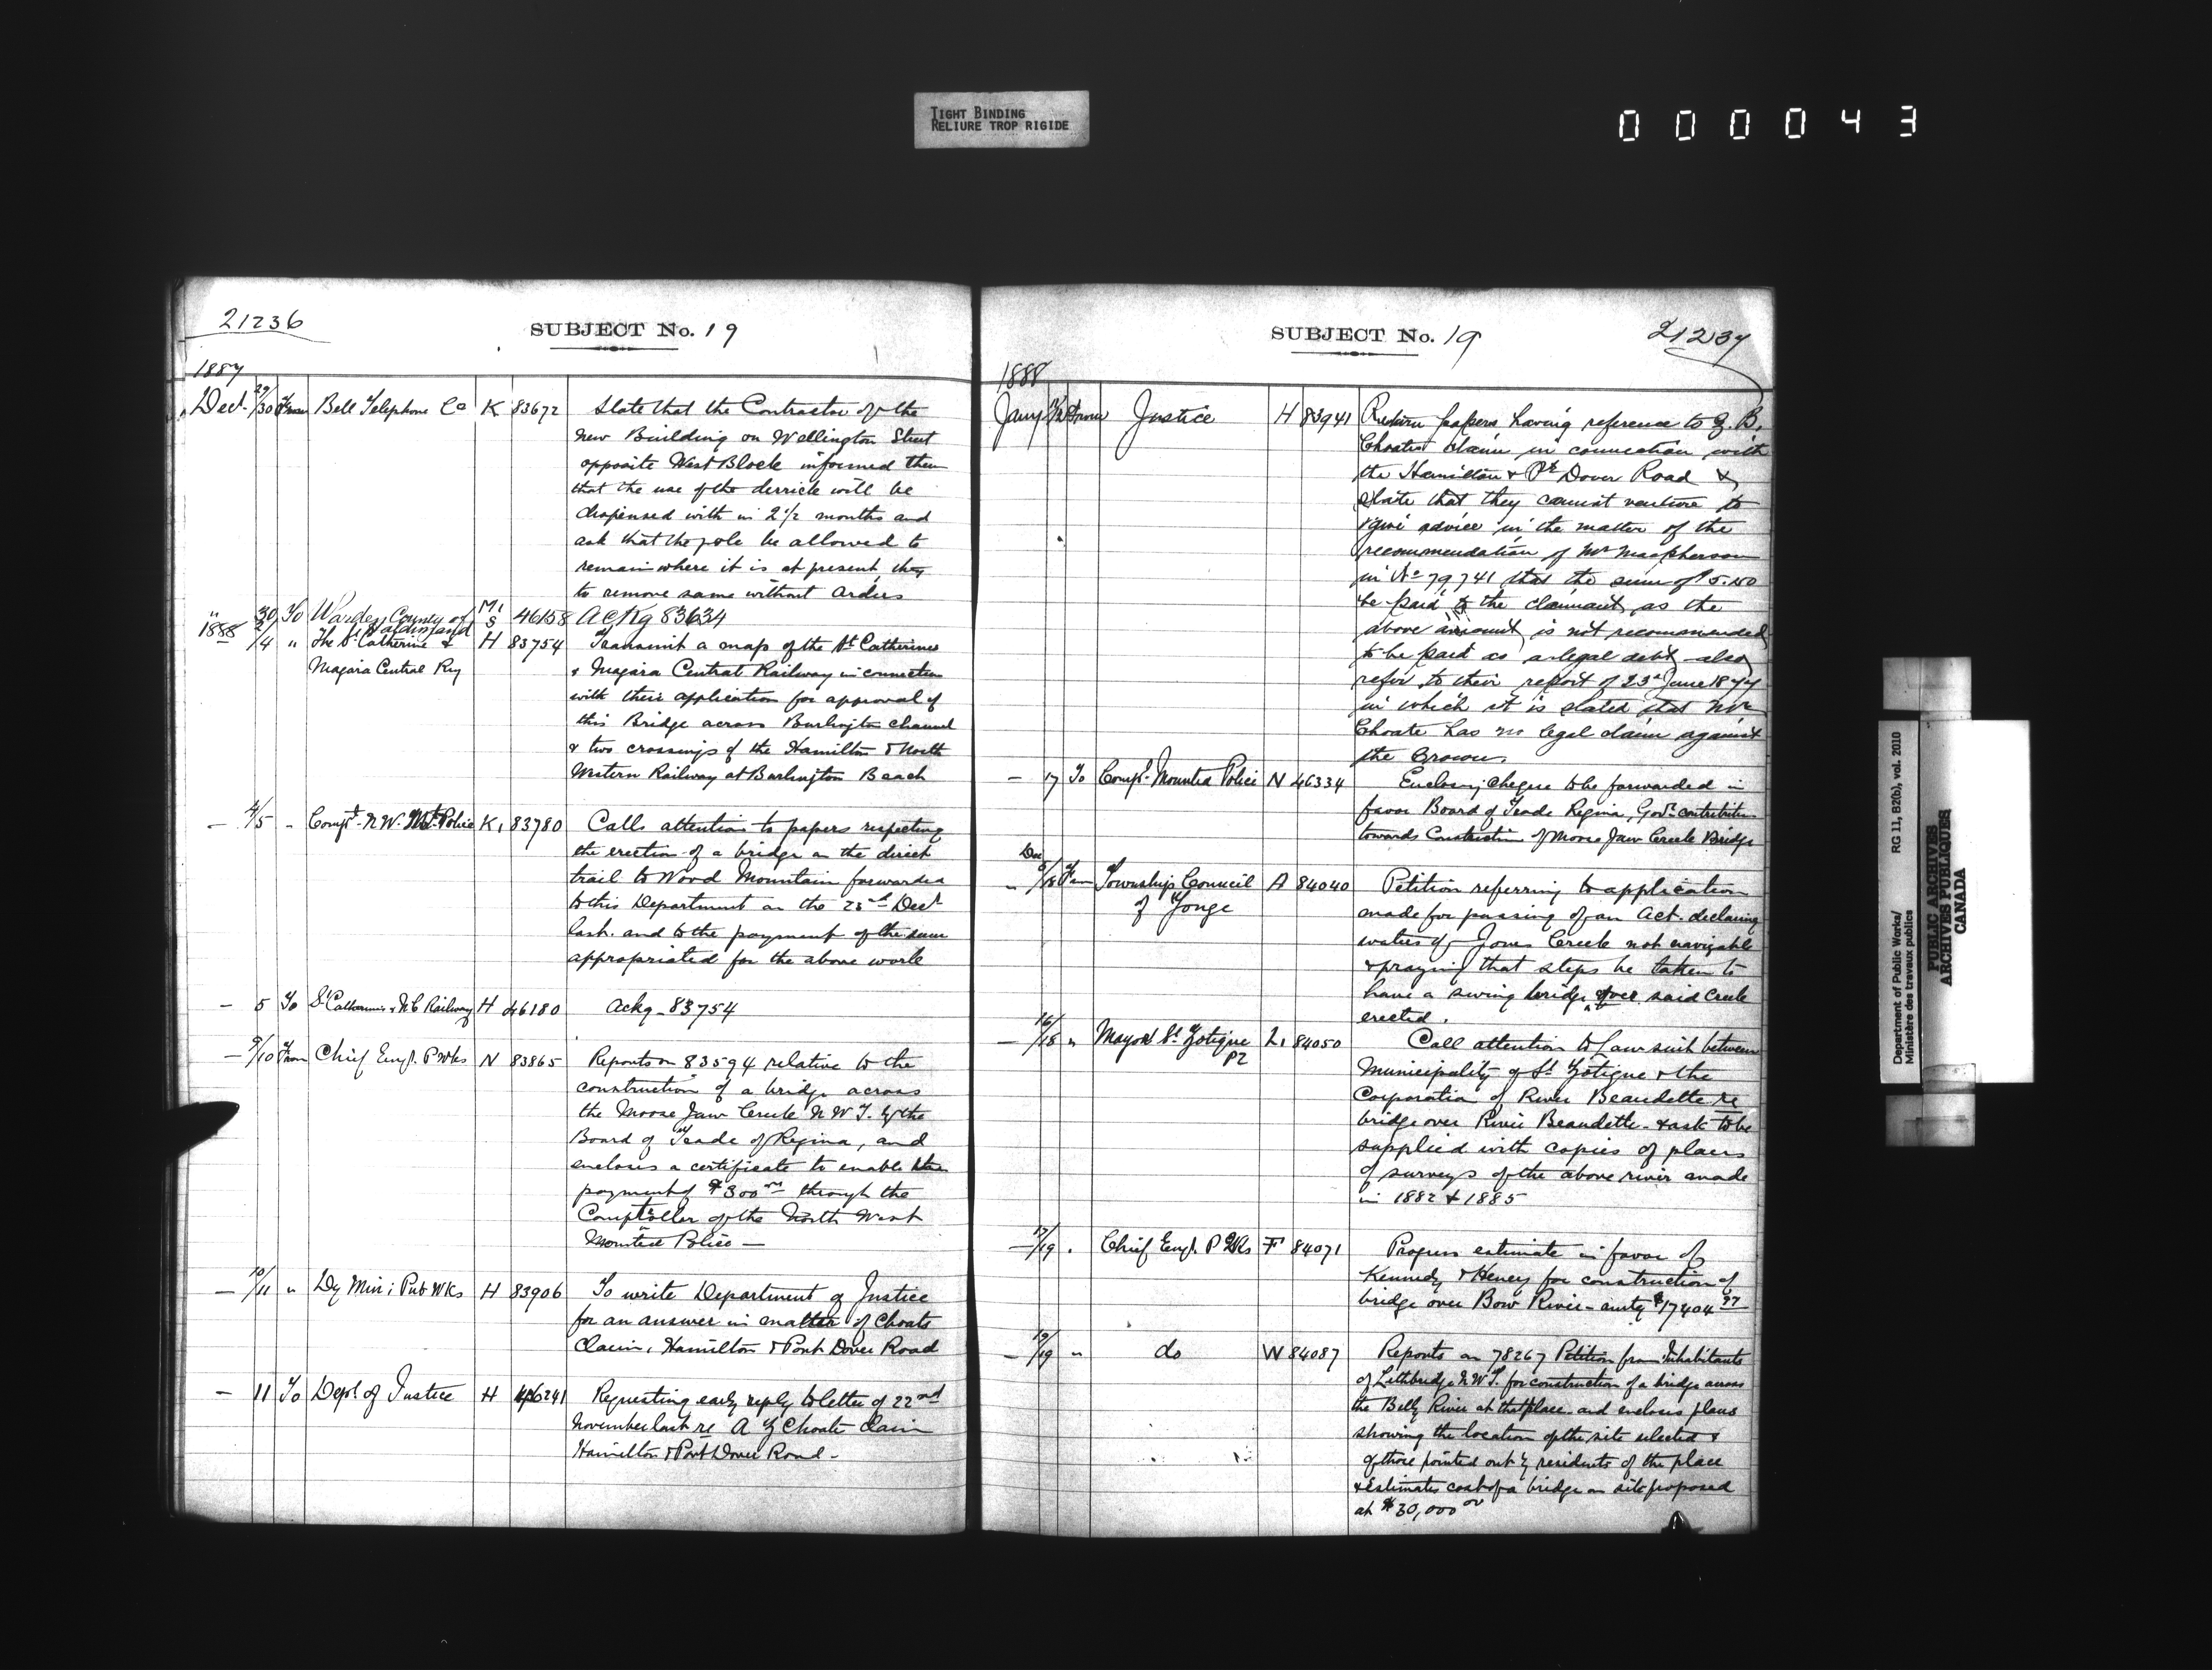 TIGHT BINDING
RELIURE TROP RIGIDE
000043
21236
SUBJECT No. 19
1887
Dec. 29/30 From Bell Telephone Co K 83672 State that the Contractor of the
new Building on Wellington Street
opposite West Block informed them
that the use of the derrick will be
dispensed with in 2 1/2 months and
ask that the pole be allowed to
remain where it is at present
to remove same without orders
" 30 To Warden County of Haldimand 46158 Ackg 83634
1888
2/4 " The St Catherine & H 83754 Transmit a map of the St Catherines
Niagara Central Ry & Niagara Central Railway in connection
with their application for approval of
this Bridge across Burlington channel
& two crossings of the Hamilton & North
Western Railway at Burlington Beach
— 4/5 " Compt. N.W. Mt. Police K, 83780 Calls attention to papers respecting
the erection of a bridge on the direct
trail to Wood Mountain forwarded
to this Department on the Dec.
last. and to the payment of the sum
appropriated for the above work
— 5 To St Catharines & N.C Railway H 46180 Ackg. 83754
— 9/10 From Chief Eng. P Wks N 83865 Reports on 83594 relative to the
construction of a bridge across
the Moose Jaw Creek N W T. by the
Board of Trade of Regina, and
encloses a certificate to enable the
payment of $300 through the
Comptroller of the North West
Mounted Police —
— 10/11 " Dy Min: Pub Wks H 83906 To write Department of Justice
for an answer in matter of Choate
Claim, Hamilton & Port Dover Road
— 11 To Dept. of Justice H 46241 Requesting early reply to letter of 22nd
November last re A Z Choate Claim
Hamilton & Port Dover Road -
SUBJECT No. 19
21237
1888
Jany From Justice H 83941 Return papers having reference to Z. B.
Choates claim in connection with
the Hamilton & Pt Dover Road &
state that they cannot venture to
give advice in the matter of the
recommendation of Mr Macpherson
in No 79741 that the sum of
be paid to the claimant, as the
above amount is not recommended
to be paid as a legal debt also
refer to their report of 23d June 1877
in which it is stated that Mr
Choate has no legal claim against
the Crown.
— 17 To Compt. Mounted Police N 46334 Enclosing cheque to be forwarded in
favor Board of Trade Regina, Govt contribution
towards Construction of Moose Jaw Creek Bridge
Dec
" /18 From Township Council A 84040 Petition referring to application
of Yonge made for passing of an Act. declaring
waters of Jones Creek not navigable
& praying that steps be taken to
have a swing bridge over said Creek
erected.
— 16/18 " Mayor St. Zotique L, 84050 Call attention to Law suit between
PQ Municipality of St. Zotique & the
Corporation of River Beaudette re
bridge over River Beaudette - & ask to be
supplied with copies of plans
of surveys of the above river made
in 1882 & 1885
— 17/19 " Chief Eng. P Wks F 84071 Progress estimate in favor of
Kennedy & Heney for construction of
bridge over Bow River - amtg $17404 97
— 19/19 " do W 84087 Reports on 78267 Petition from Inhabitants
of Lethbridge N.W.T. for construction of a bridge across
the Belly River at that place and encloses plans
showing the location of the site selected &
of those pointed out by residents of the place
& Estimates cost of a bridge on site proposed
at $30,000 00
Department of Public Works/ RG 11, B2(b), vol. 2010
Ministère des travaux publics
PUBLIC ARCHIVES
ARCHIVES PUBLIQUES
CANADA